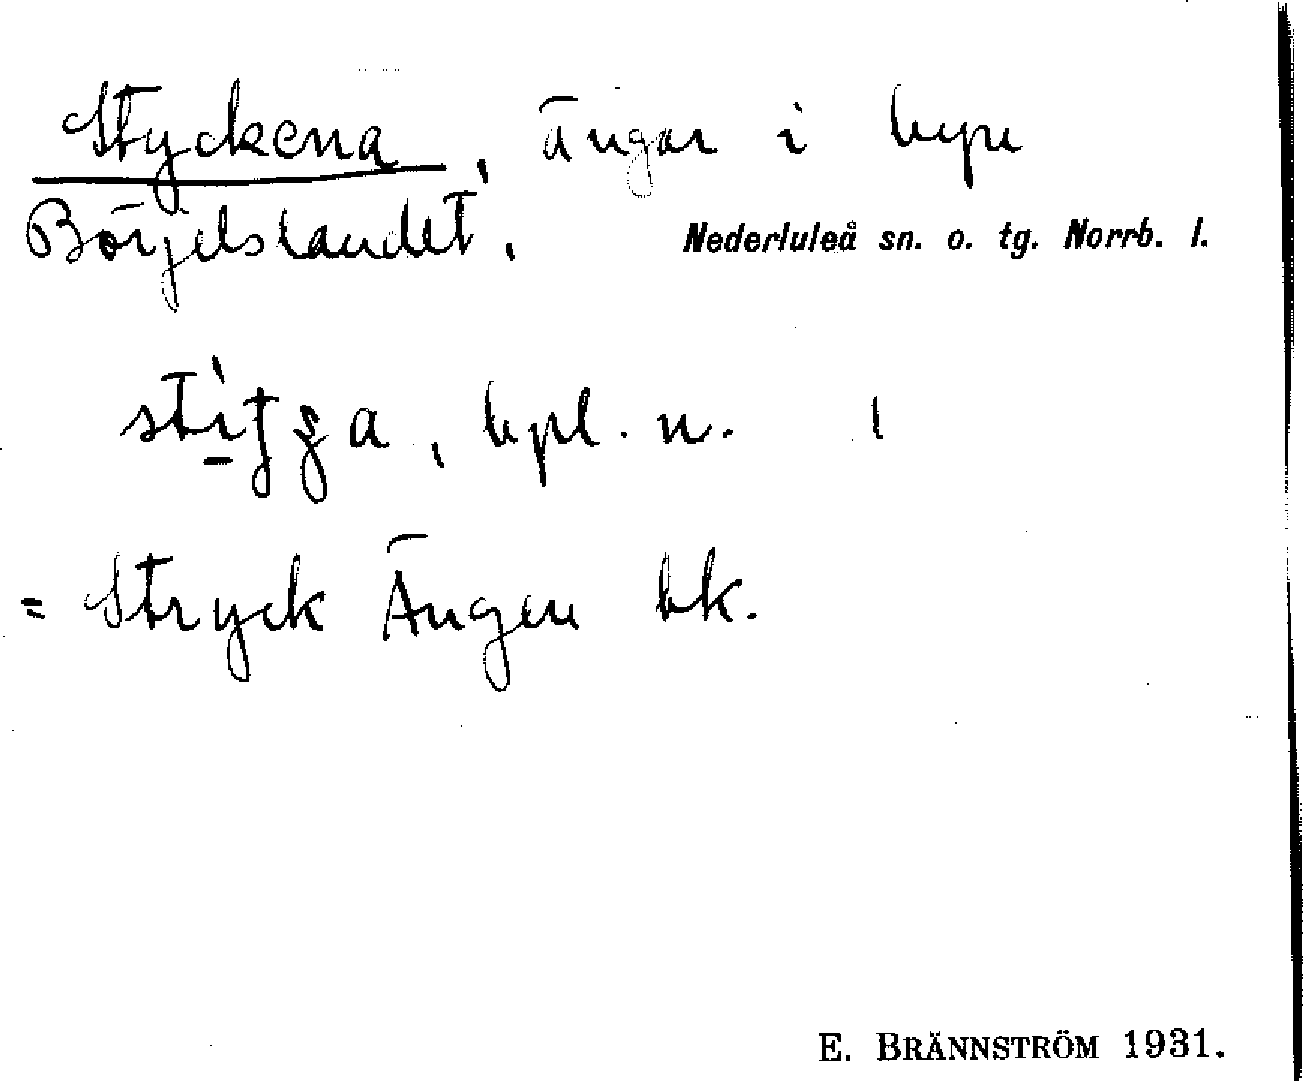 Styckena, ängar i byn
Börjelslandet.
Nederluleå sn. o. tg. Norrb. l.
bpl. n. 1
= Stryck Ängen bk.
E. BRÄNNSTRÖM 1931.